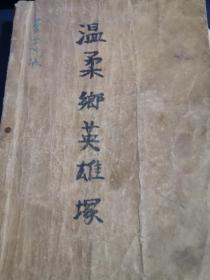 溫柔鄉英雄塚